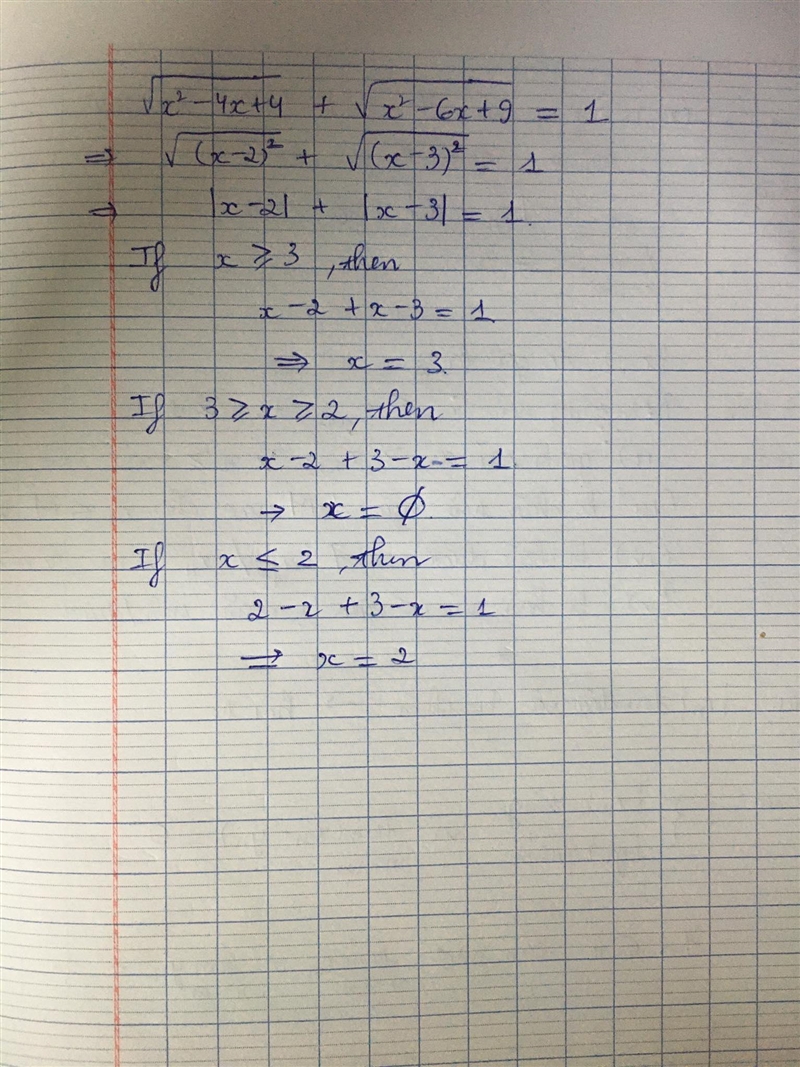 √x² - 4x + 4 + √x² - 6x + 9 = 1
⇒ √(x-2)² + √(x-3)² = 1
⇒ |x-2| + |x-3| = 1.
If x ⩾ 3, then
x - 2 + x - 3 = 1
⇒ x = 3.
If 3 ⩾ x ⩾ 2, then
x - 2 + 3 - x = 1.
→ x = ∅
If x ≤ 2, then
2 - x + 3 - x = 1
⇒ x = 2